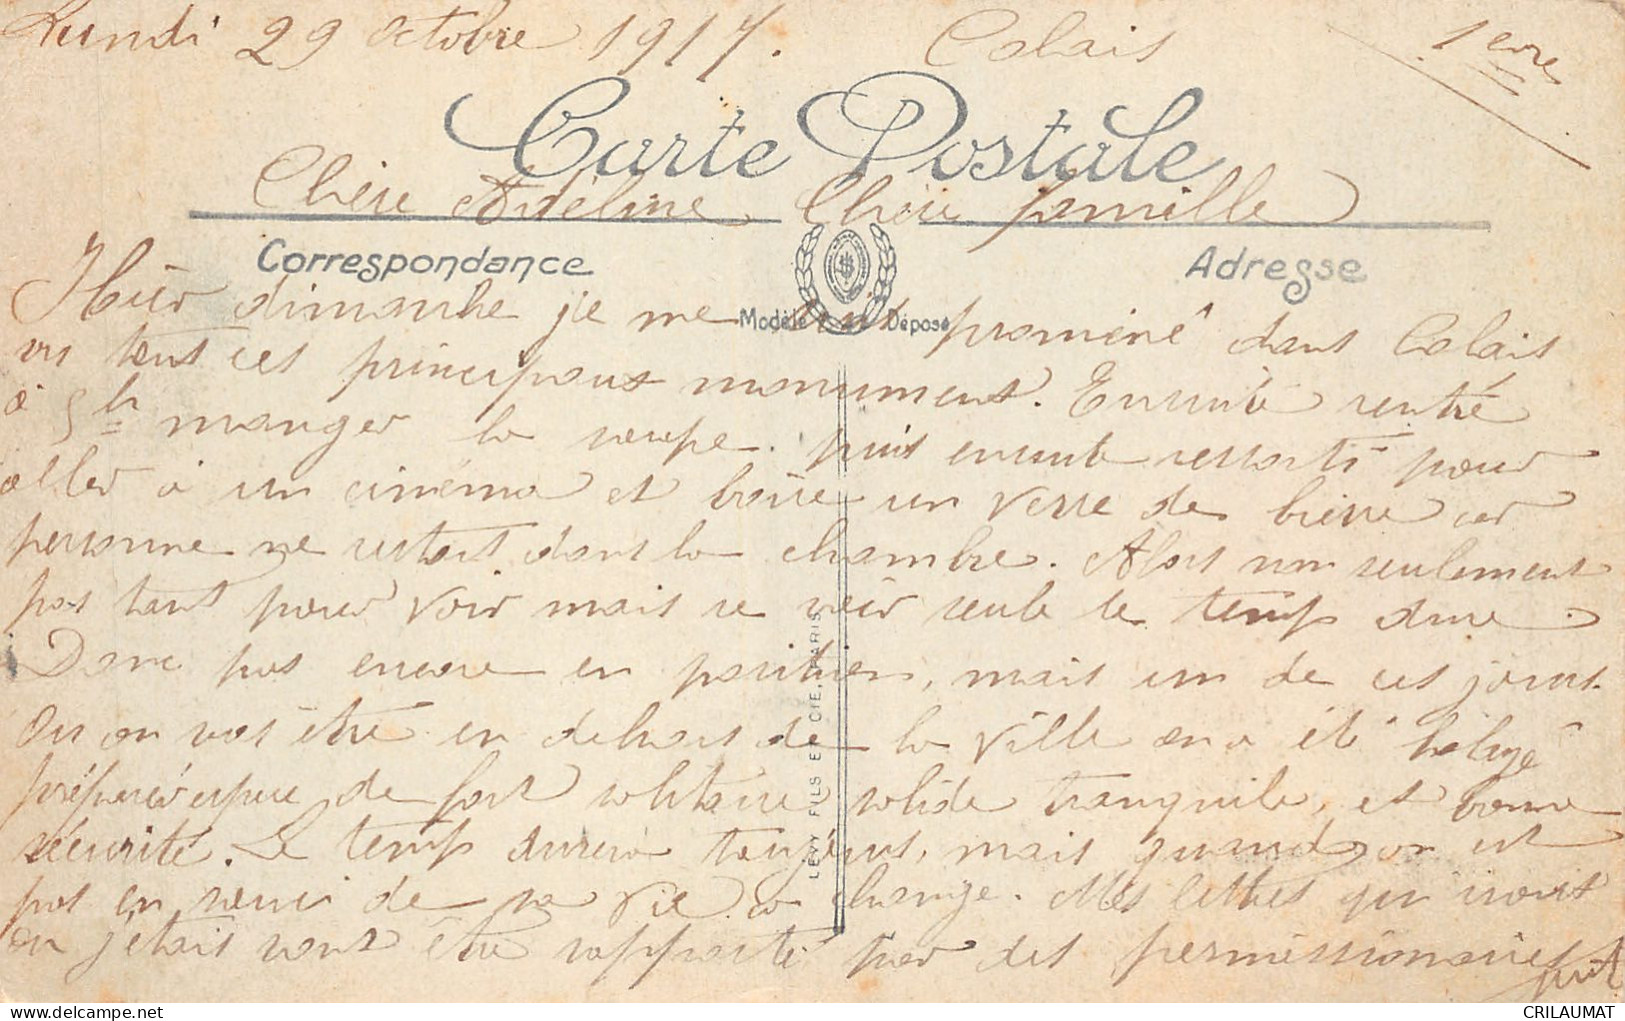 Lundi 29 octobre 1917. Calais 1ere
Carte Postale
Chère Adeline Chère famille
Correspondance Adresse
Hier dimanche je me suis promené dans Calais
Modèle Déposé
vis tout ces principaux monument. Ensuite rentré
à 5h manger la soupe. puis ensuite ressorti pour
aller à un cinéma et boire un verre de bierre car
personne ne restait dans la chambre. Alors non seulement
pas tant pour voir mais se voir seule le temp dure.
Donc pas encore en position, mais un de ces jours.
Ou on vas être en dehors de la ville on a été
préparer de fort solitaire solide tranquile, et bonne
sécurité. Le temp durera toujours, mais quand on est
pas en souci de sa vie ca change. Mes lettres qui iront
ou j'étais vont être rapporté par des permissionaires
LEVY FILS ET CIE, PARIS
CRILAUMAT